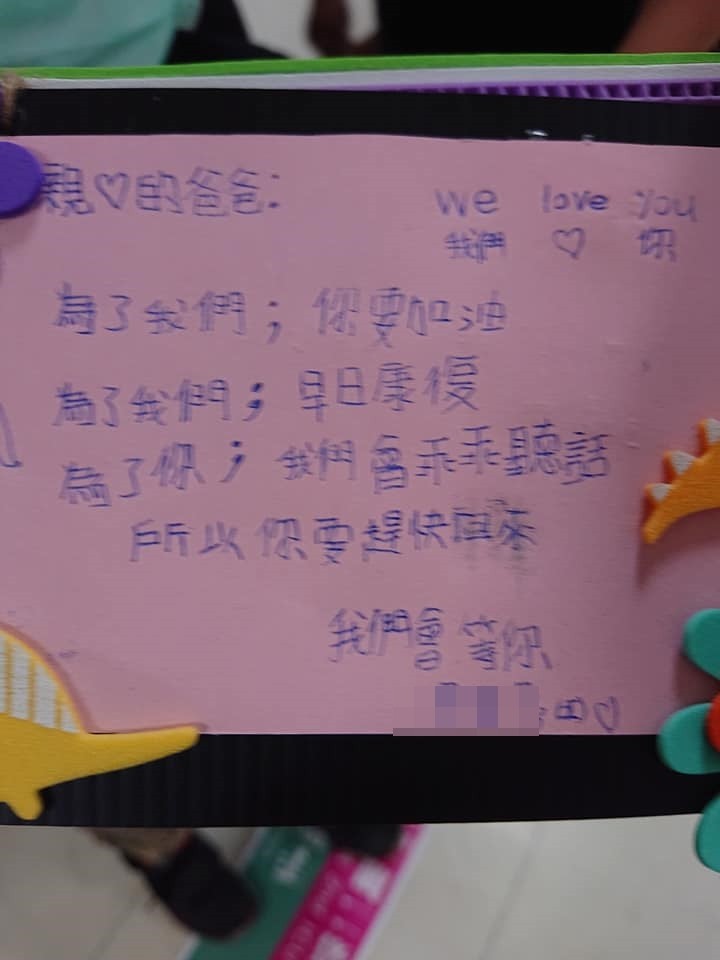 親♡的爸爸：
we love you
我們 ♡ 你
為了我們；你要加油
為了我們；早日康復
為了你；我們會乖乖聽話
所以你要趕快回來
我們會等你
♡